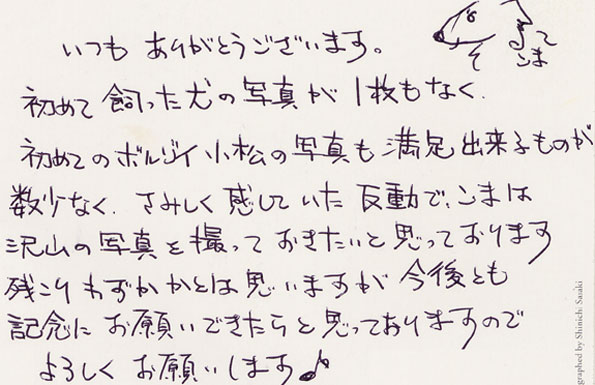 いつも ありがとうございます。
初めて 飼った犬の写真が1枚もなく.
初めてのボルゾイ小松の写真も満足出来るものが
数少なく. さみしく感じていた反動で.こまは
沢山の写真を撮っておきたいと思っております
残こりわずかかとは思いますが今後とも
記念にお願いできたらと思っておりますので
よろしくお願いします♪
こま
graphed by Shinichi Sasaki